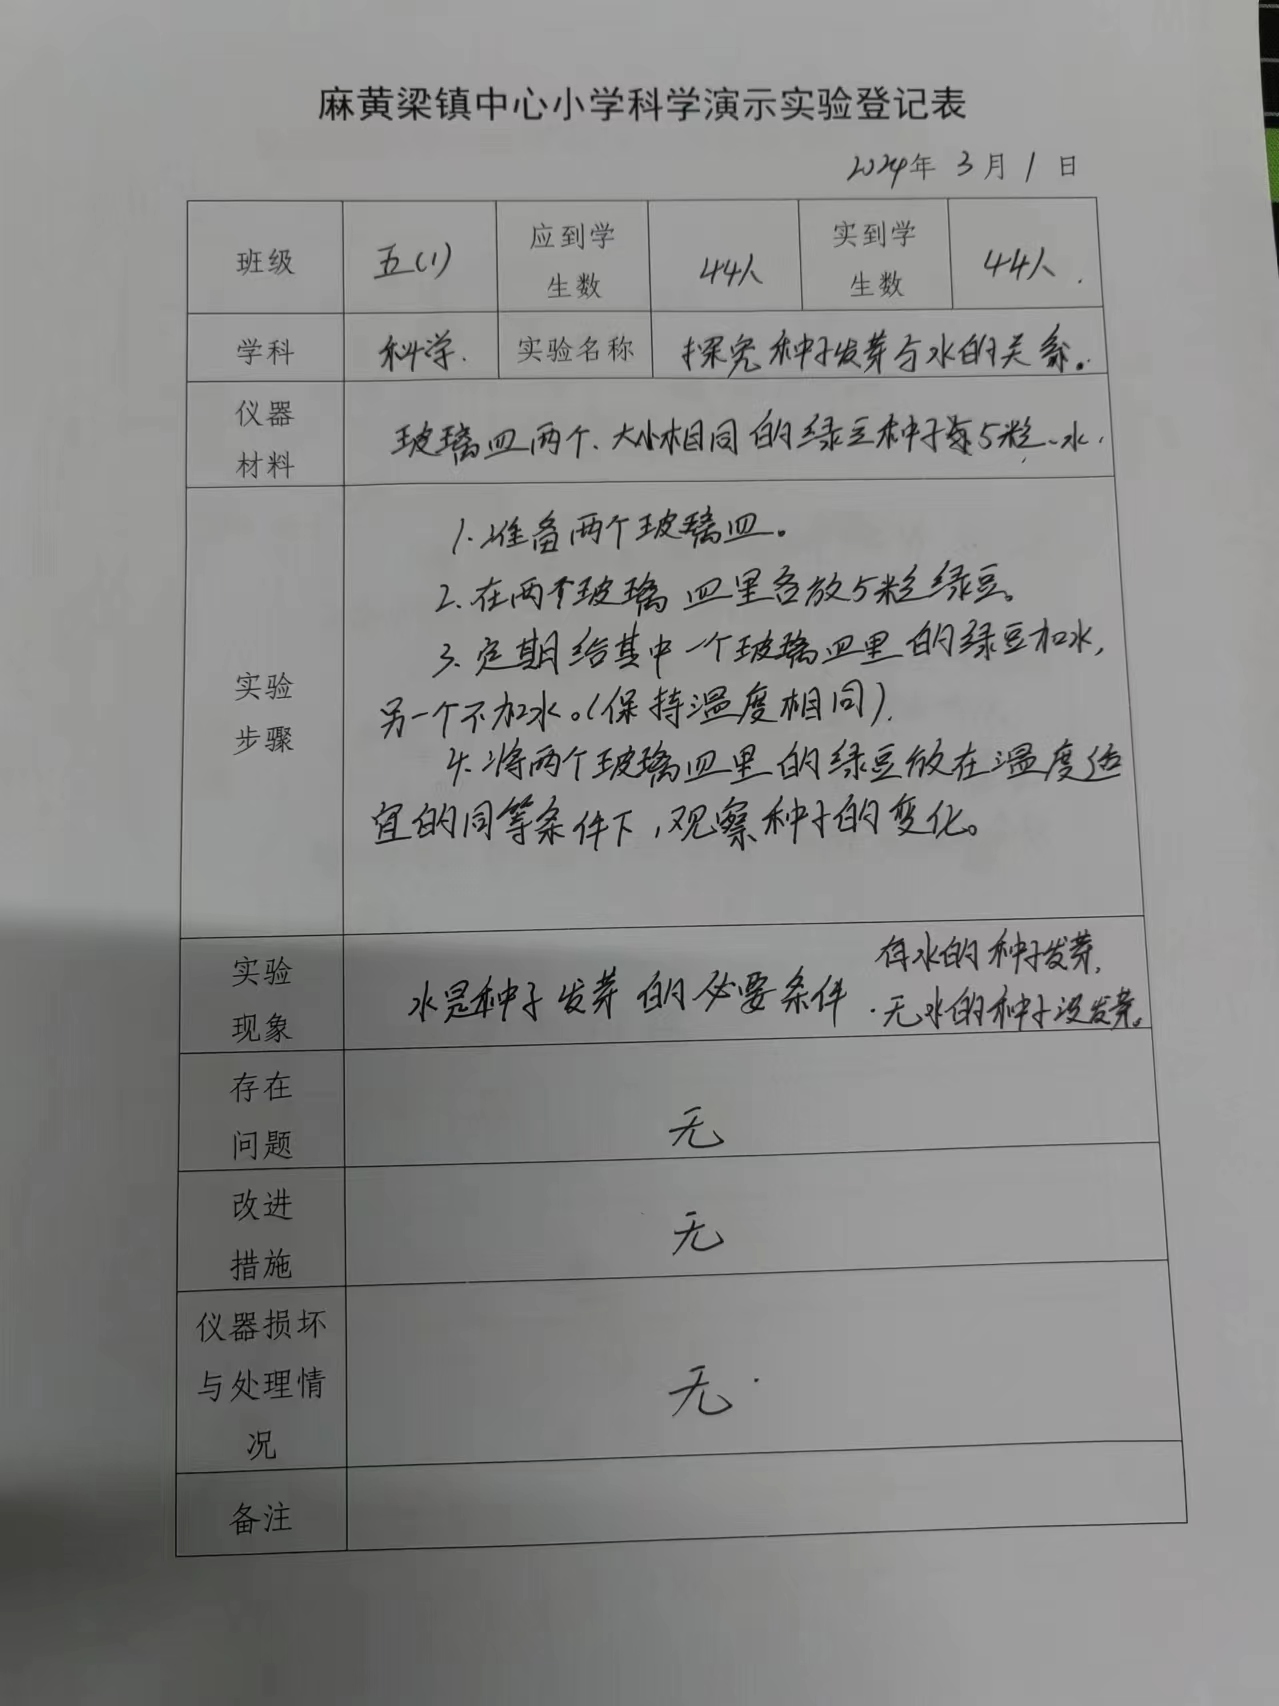 麻黄梁镇中心小学科学演示实验登记表
2024年 3月 1日
班级 五(1) 应到学生数 44人 实到学生数 44人.
学科 科学. 实验名称 探究种子发芽与水的关系。
仪器材料 玻璃皿两个、大小相同的绿豆种子每5粒、水.
实验步骤
1.准备两个玻璃皿。
2.在两个玻璃皿里各放5粒绿豆。
3.定期给其中一个玻璃皿里的绿豆加水,
另一个不加水。(保持温度相同).
4.将两个玻璃皿里的绿豆放在温度适
宜的同等条件下,观察种子的变化。
实验现象 水是种子发芽的必要条件.
有水的种子发芽,
无水的种子没发芽。
存在问题 无
改进措施 无
仪器损坏与处理情况 无.
备注